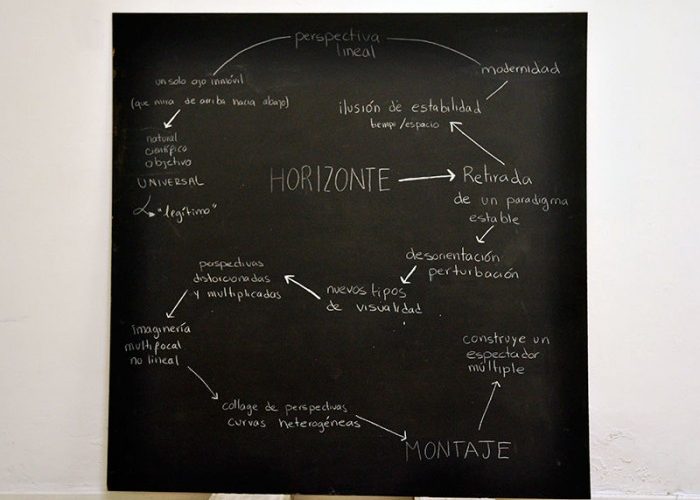 perspectiva
lineal
un solo ojo inmóvil
(que mira de arriba hacia abajo)
natural
científico
objetivo
UNIVERSAL
"legítimo"
modernidad
ilusión de estabilidad
tiempo/espacio
HORIZONTE
Retirada
de un paradigma
estable
desorientación
perturbación
nuevos tipos
de visualidad
perspectivas
distorcionadas
y multiplicadas
Imaginería
multifocal
no lineal
collage de perspectivas
curvas heterogéneas
MONTAJE
construye un
espectador
múltiple